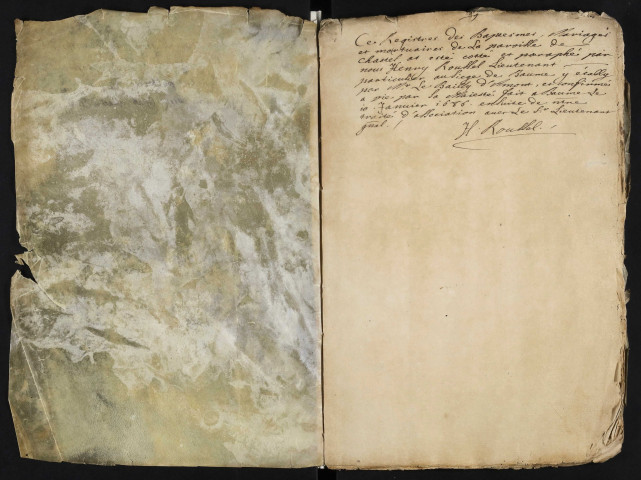 Ce Registres des Baptesmes, Mariages
et mortuaires de La paroisse de
chasel at esté cotté et paraphé par
nous Henry Roussel Lieutenant
particulier au siege de Baume y estably
par Mr Le Bailly d'Amont, et confirmé
par sa Majesté fait a Baume Le
10 Januier 1686 ensuite de
traité d'association auec Le Sr Lieutenant
gnal.
H Roussel.